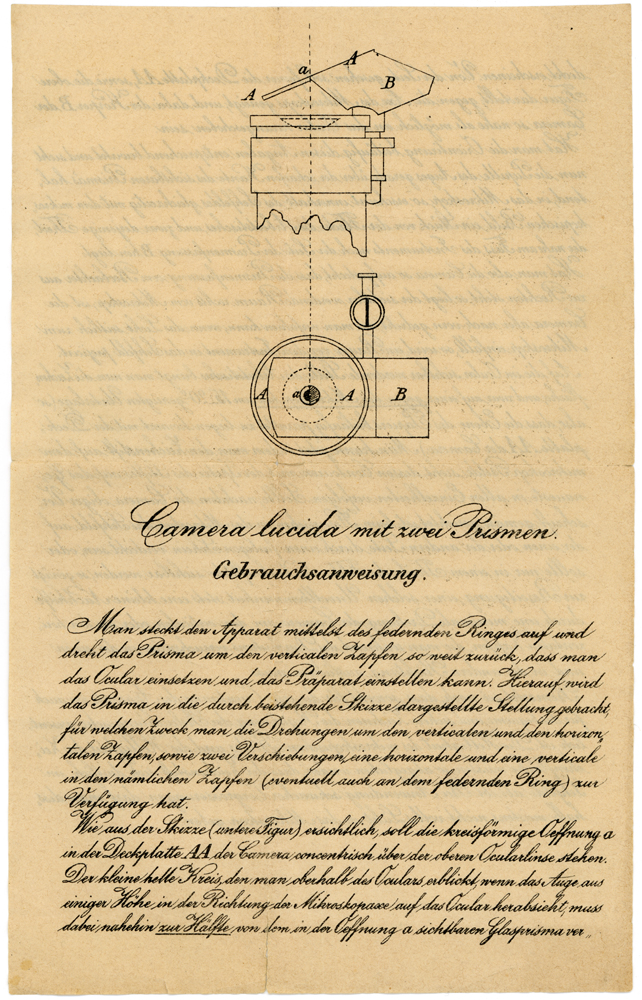 A
a
A
B
A
a
A
B
Camera lucida mit zwei Prismen.
Gebrauchsanweisung.
Man steckt den Apparat mittelst des federnden Ringes auf und
dreht das Prisma um den verticalen Zapfen so weit zurück, dass man
das Ocular einsetzen und das Präparat einstellen kann. Hierauf wird
das Prisma in die durch beistehende Skizze dargestellte Stellung gebracht,
für welchen Zweck man die Drehungen um den verticalen und den horizon,
talen Zapfen, sowie zwei Verschiebungen, eine horizontale und eine verticale
in den nämlichen Zapfen (eventuell auch an dem federnden Ring) zur
Verfügung hat.
Wie aus der Skizze (untere Figur) ersichtlich, soll die kreisförmige Oeffnung a
in der Deckplatte AA der Camera concentrisch über der oberen Ocularlinse stehen.
Der kleine helle Kreis, den man oberhalb des Oculars erblickt, wenn das Auge aus
einiger Höhe in der Richtung der Mikroskopaxe auf das Ocular herabsieht, muss
dabei nahehin zur Hälfte von dem in der Oeffnung a sichtbaren Glasprisma ver„